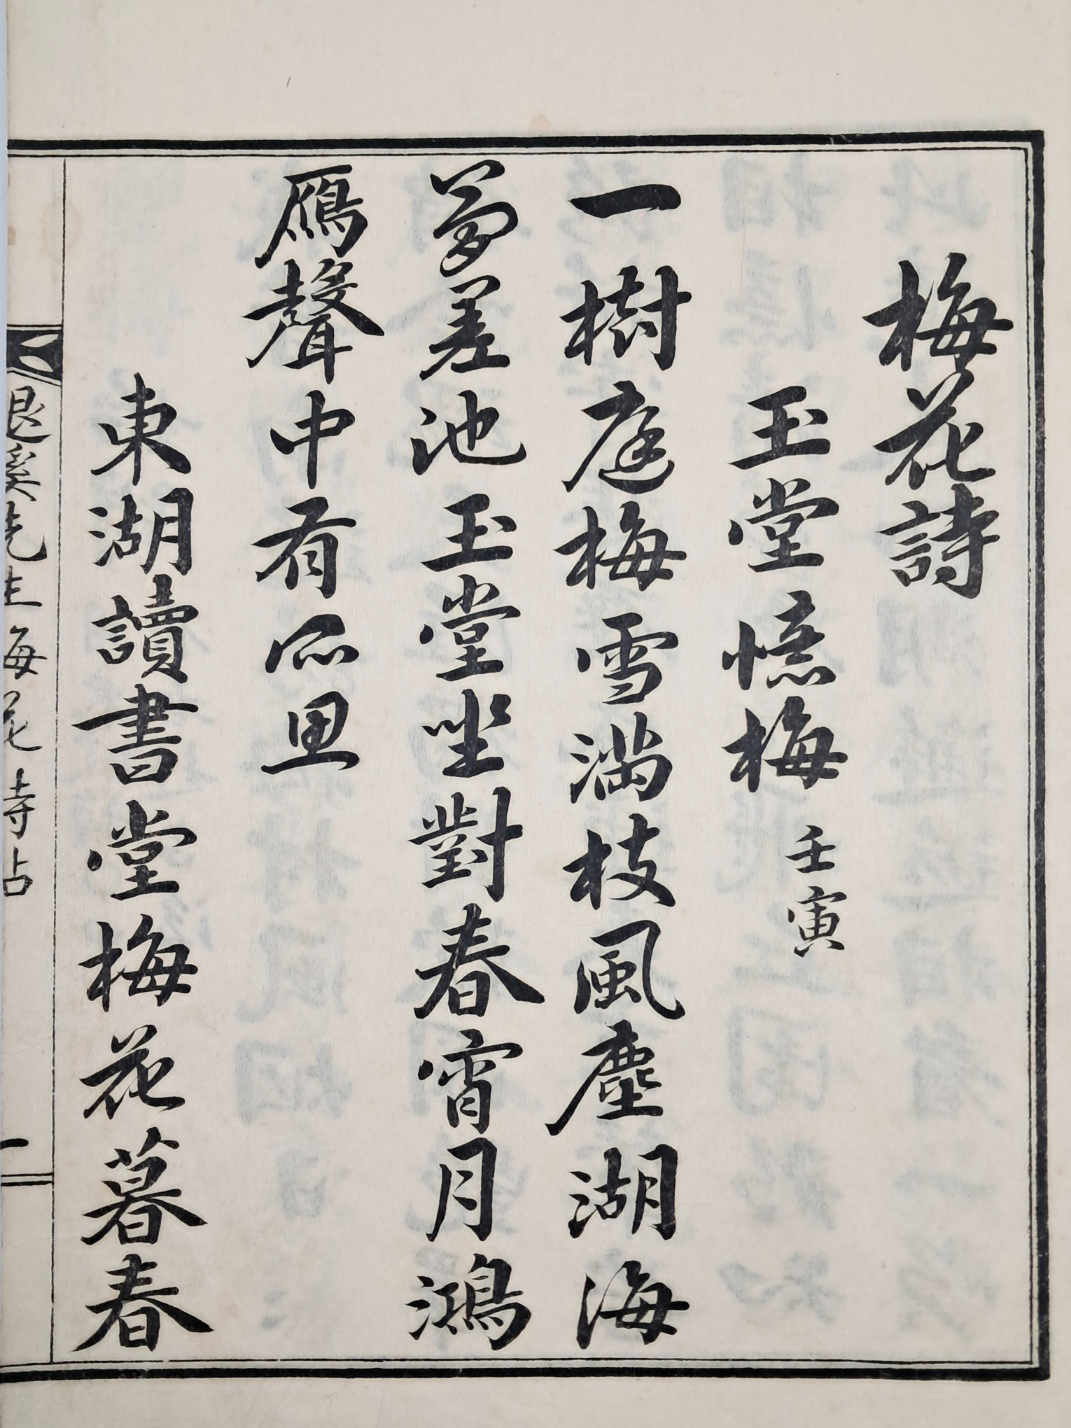 梅花詩
玉堂憶梅 壬寅
一樹庭梅雪滿枝風塵湖海
夢差池玉堂坐對春宵月鴻
鴈聲中有所思
東湖讀書堂梅花暮春
退溪先生梅花詩帖
一